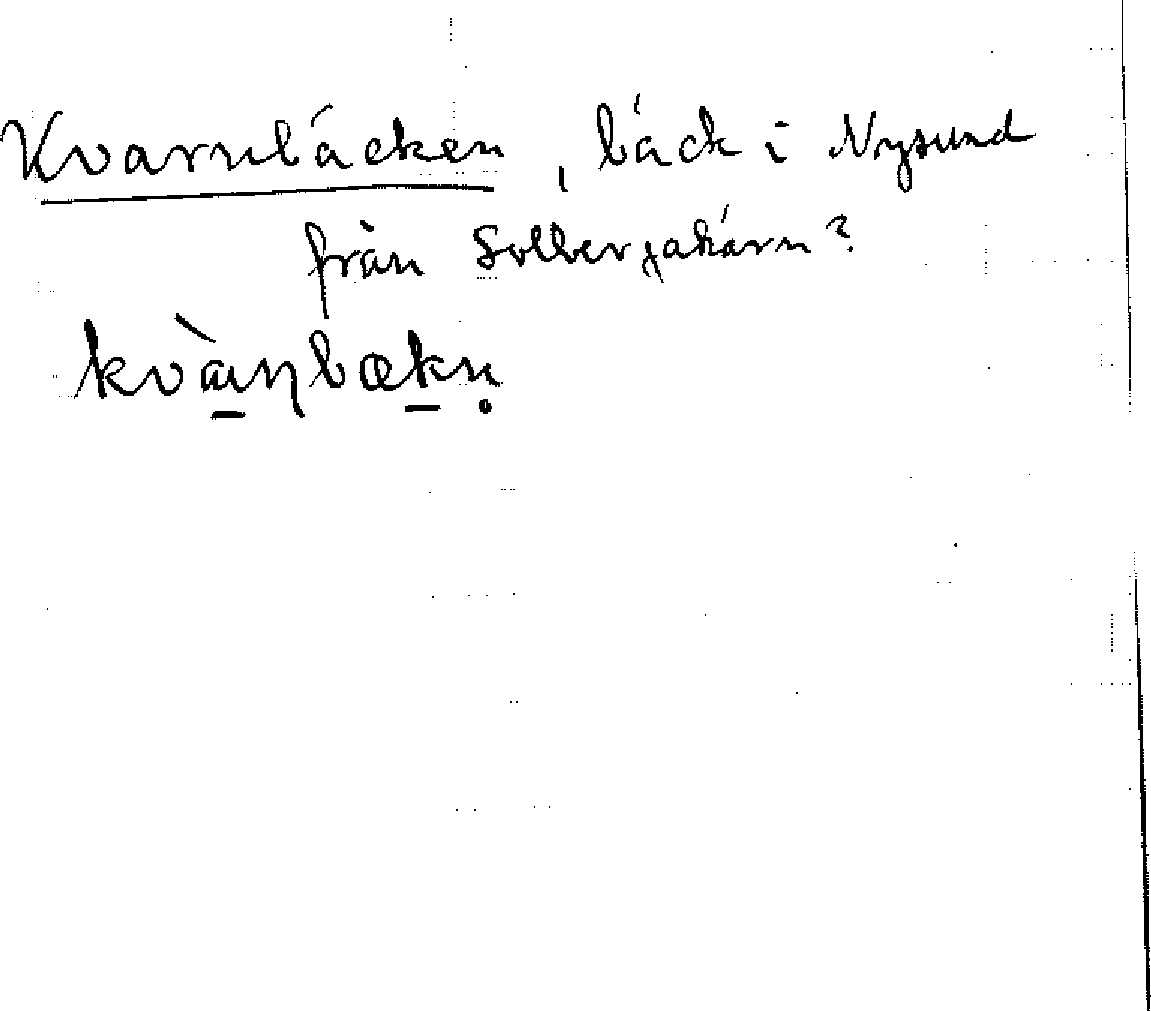 Kvarnbäcken, bäck i Nysund
från Solbergatjärn?
kvàɳbækn̥